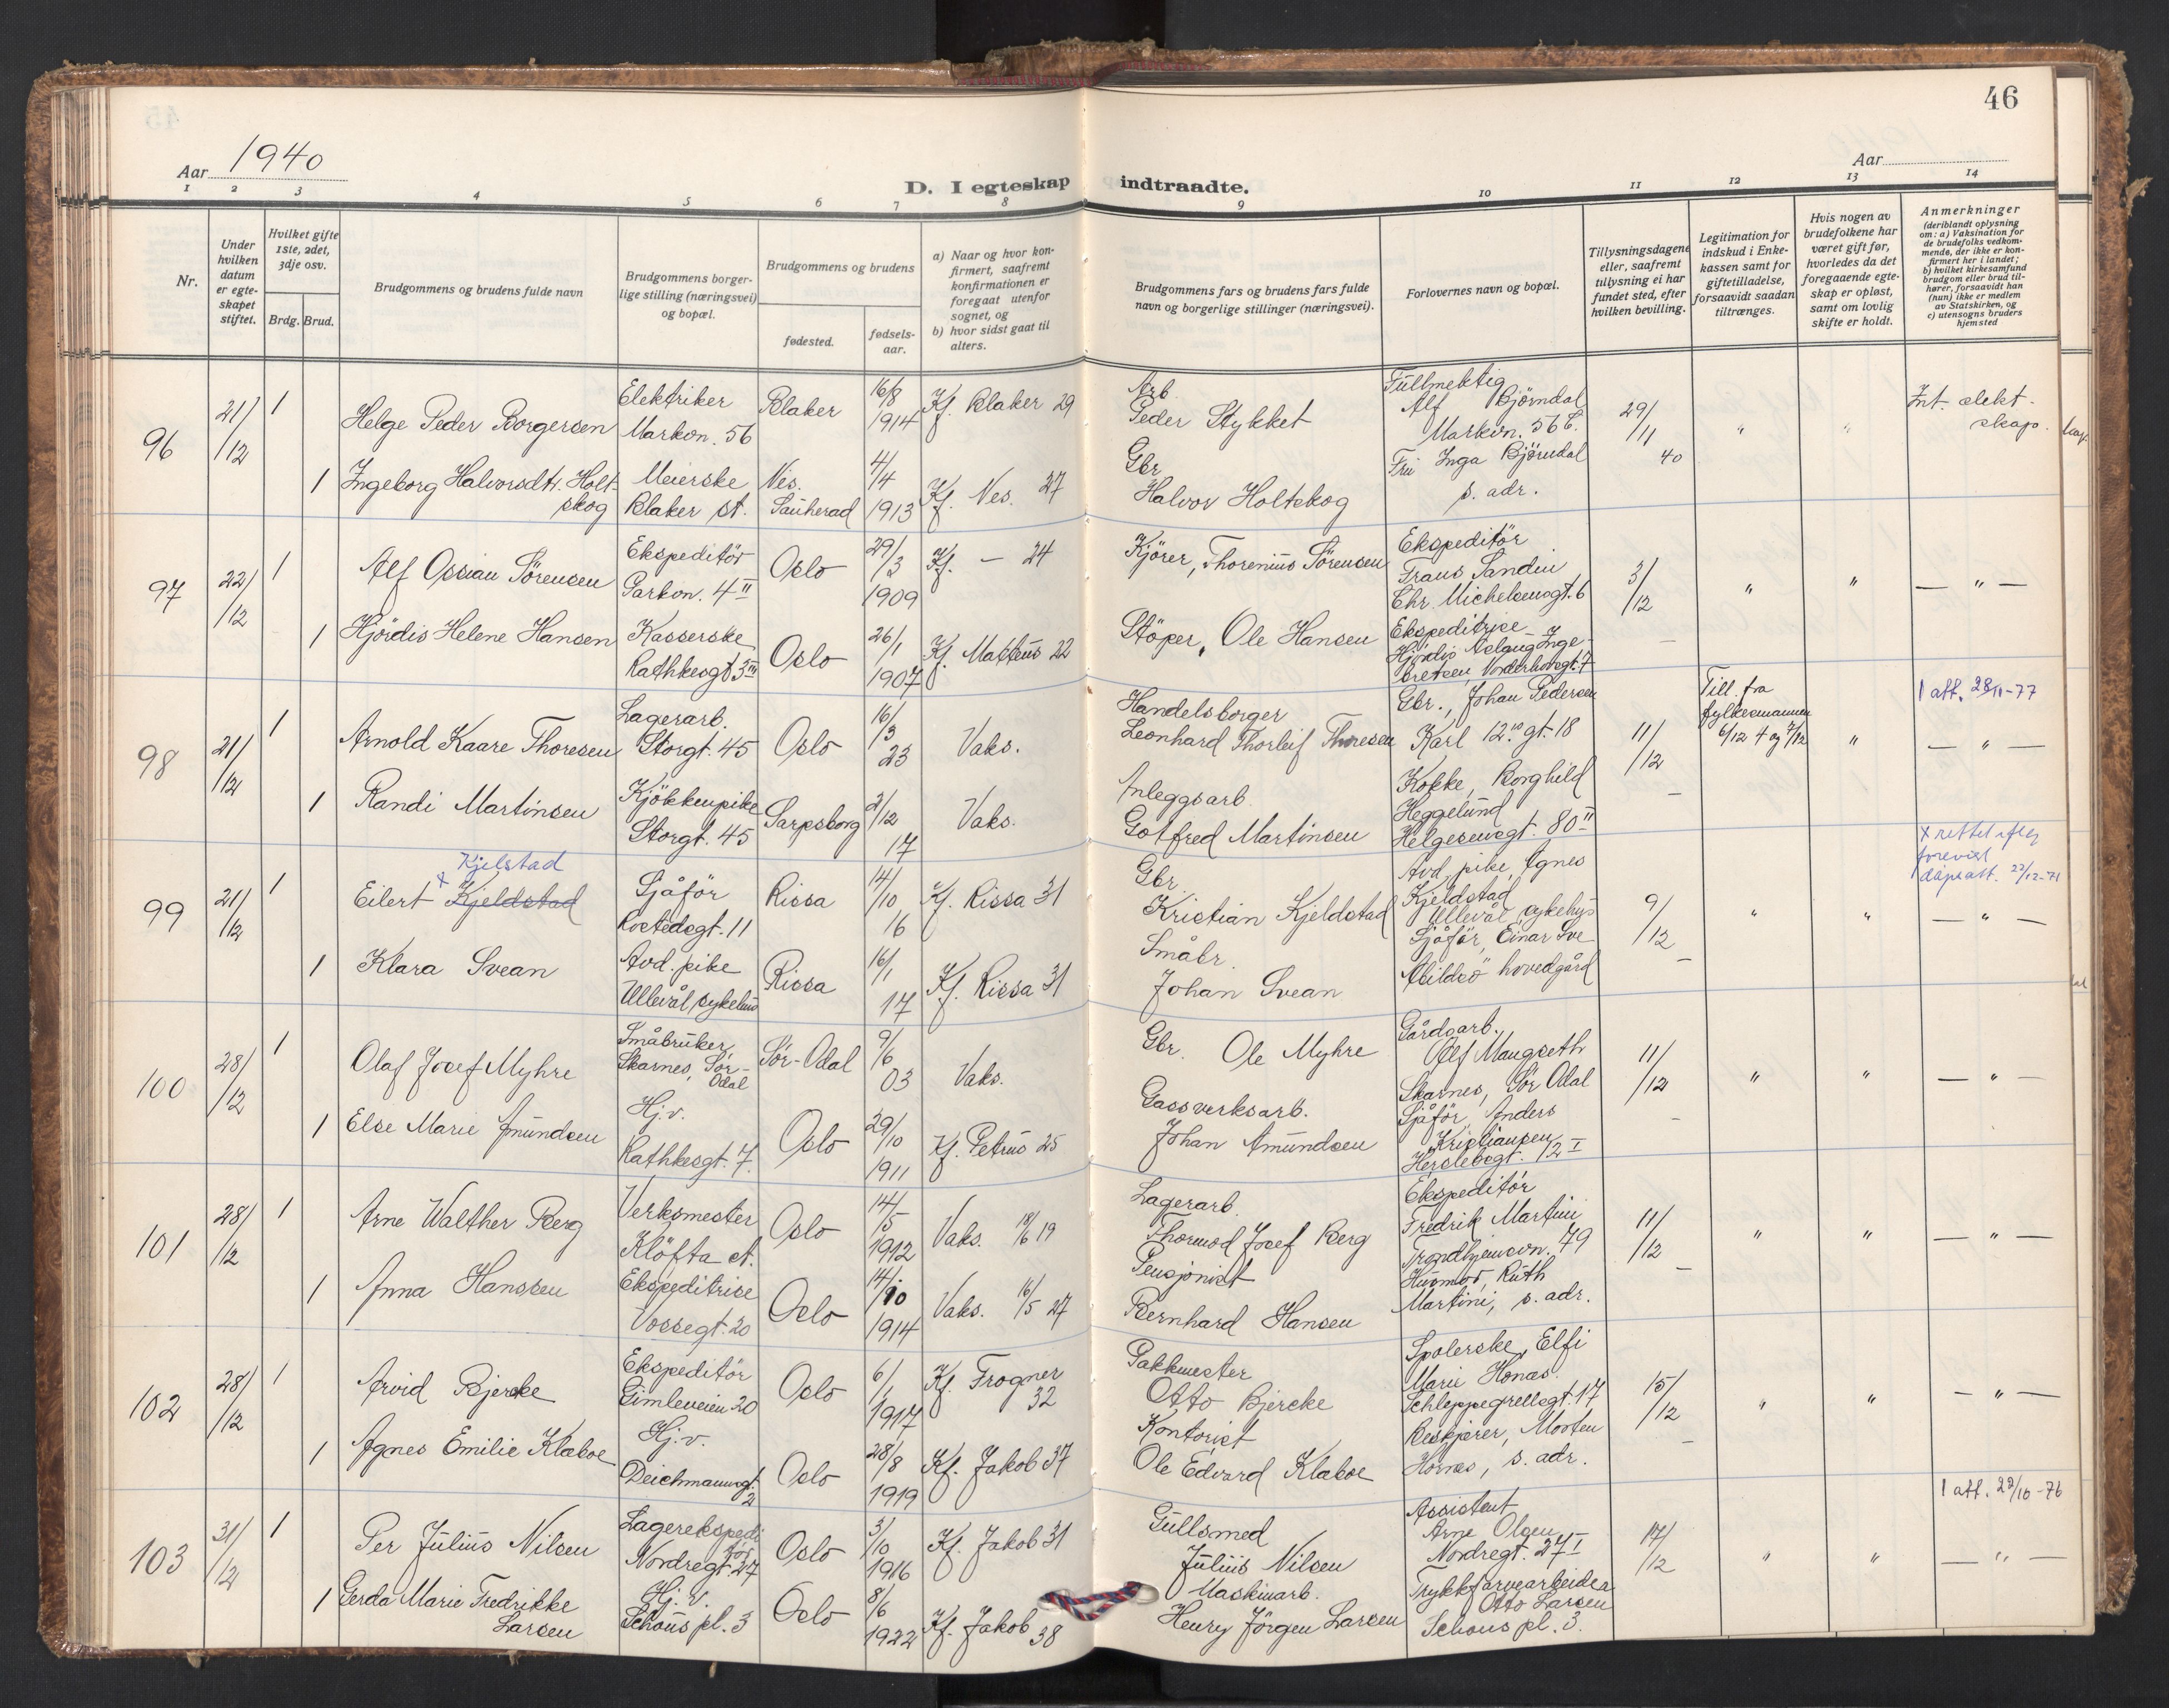 46
Aar 1940
Aar
D. I egteskap indtraadte.
1 2 3 4 5 6 7 8 9 10 11 12 13 14
Nr.
Under hvilken datum er egteskapet stiftet.
Hvilket gifte 1ste, 2det, 3dje osv.
Brdg. Brud.
Brudgommens og brudens fulde navn
Brudgommens borgerlige stilling (næringsvei) og bopæl.
Brudgommens og brudens
fødested.
fødselsaar.
a) Naar og hvor konfirmert, saafremt konfirmationen er foregaat utenfor sognet, og
b) hvor sidst gaat til alters.
Brudgommens fars og brudens fars fulde navn og borgerlige stillinger (næringsvei).
Forlovernes navn og bopæl.
Tillysningsdagene eller, saafremt tillysning ei har fundet sted, efter hvilken bevilling.
Legitimation for indskud i Enkekassen samt for giftetilladelse, forsaavidt saadan tiltrænges.
Hvis nogen av brudefolkene har været gift før, hvorledes da det foregaaende egteskap er opløst, samt om lovlig skifte er holdt.
Anmerkninger (deriblandt oplysning om: a) Vaksination for de brudefolks vedkommende, der ikke er konfirmert her i landet; b) hvilket kirkesamfund brudgom eller brud tilhører, forsaavidt han (hun) ikke er medlem av Statskirken, og c) utensogns bruders hjemsted
96 21/12 1 Helge Peder Borgersen Elektriker Markvn. 56 Blaker 16/8 1914 Kf. Blaker 29 Arb. Peder Stykket Fullmektig Alf Bjørndal Markvn. 56 b. 29/11 40 " " Int. slektskap.
1 Ingeborg Halvorsdtr. Holtskog Meierske Blaker st. Nes. Sauherad 4/4 1913 Kf. Nes. 27 Gbr. Halvor Holtskog Fru Inga Bjørndal s. adr.
97 22/12 1 Alf Ossian Sörensen Ekspeditör Parkvn. 4 II Oslo 29/3 1909 Kf. — 24 Kjörer, Thorenius Sörensen Ekspeditör Frans Sandin Chr. Michelsensgt. 6 3/12 — " " — " —
1 Hjördis Helene Hansen Kasserske Rathkesgt 3 III Oslo 26/1 1907 Kf. Matteus 22 Stöper, Ole Hansen Ekspeditrise Hjördis Aslaug Ingebretsen, Vorderhovsgt. 7
98 21/12 1 Arnold Kaare Thoresen Lagerarb. Storgt. 45 Oslo 16/3 23 Vaks. Handelsborger Leonhard Thorleif Thoresen Gbr., Johan Pedersen Karl 12.tes gt. 18 11/12 — Till. fra fylkesmannen 6/12 + og 7/12 " 1 att. 28/11-77 — " —
1 Randi Martinsen Kjökkenpike Storgt. 45 Sarpsborg 2/12 17 Vaks. Anleggsarb. Gotfred Martinsen Kokke, Borghild Heggelund Helgesensgt. 80 II
99 21/12 1 Eilert x Kjeldstad Kjelstad Sjåför Rostedsgt. 11 Rissa 14/10 16 Kf. Rissa 31 Gbr. Kristian Kjeldstad Avd. pike, Agnes Kjeldstad Ullevål sykehus 9/12 — " " x rettet iflg forevist dåpsatt. 22/12-71 — " —
1 Klara Svean Avd. pike Ullevål sykehus Rissa 16/1 17 Kf. Rissa 31 Småbr. Johan Svean Sjåför, Einar Sve Abildsö hovedgård
100 28/12 1 Olaf Josef Myhre Småbruker Skarnes, Sör-Odal Sör-Odal 9/6 03 Vaks. Gbr. Ole Myhre Gårdsarb. Olf Maugseth Skarnes, Sör Odal 11/12 — " " — " —
1 Else Marie Amundsen Hj.v. Rathkesgt. 7. Oslo 29/10 1911 Kf. Petrus 25 Gassverksarb. Johan Amundsen Sjåför, Anders Kristiansen Herslebsgt. 12 I
101 28/12 1 Arne Walther Berg Verksmester Klöfta st. Oslo 14/5 1912 Vaks. 18/6 19 Lagerarb. Thormod Josef Berg Ekspeditör Fredrik Martini Trondhjemsvn. 79 11/12 — " " — " —
1 Anna Hanssen Ekspeditrise Vossegt. 20 Oslo 14/10 1914 Vaks. 16/5 27 Pensjonist Bernhard Hansen Husmor, Ruth Martini, s. adr.
102 28/12 1 Arvid Bjercke Ekspeditör Gimleveien 20 Oslo 6/1 1917 Kf. Frogner 32 Pakkmester Otto Bjercke Spolerske, Elfi Marie Hornæs. Schleppegrellsgt. 17 15/12 — " " — " —
1 Agnes Emilie Klaboe Hj.v. Deichmannsgt. 2 Oslo 28/8 1919 Kf. Jakob 37 Kontorist Ole Edvard Klaboe Beskjærer, Morten Hornes, s. adr.
103 31/12 1 Per Julius Nilsen Lagerekspeditör Nordregt. 27 Oslo 3/10 1916 Kf. Jakob 31 Gullsmed Julius Nilsen Assistent Arne Olsen Nordregt. 27 I 17/12 " " 1 att. 29/10-76 — " —
1 Gerda Marie Fredrikke Larsen Hj.v. Schous pl. 3 Oslo 8/6 1922 Kf. Jakob 38 Maskinarb. Henry Jörgen Larsen Trykkfarvearbeider Otto Larsen Schous pl. 3.